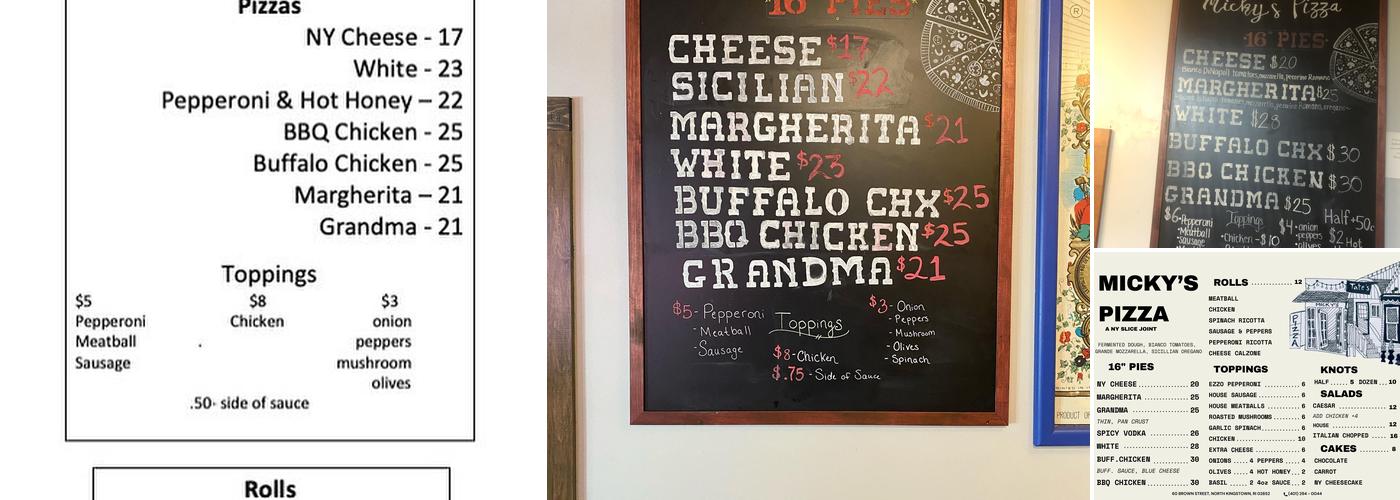 Pizzas
NY Cheese - 17
White - 23
Pepperoni & Hot Honey – 22
BBQ Chicken - 25
Buffalo Chicken - 25
Margherita – 21
Grandma - 21
Toppings
$5 $8 $3
Pepperoni Chicken onion
Meatball peppers
Sausage mushroom
olives
.50- side of sauce
Rolls
16" PIES
CHEESE $17
SICILIAN $22
MARGHERITA $21
WHITE $23
BUFFALO CHX $25
BBQ CHICKEN $25
GRANDMA $21
$5- Pepperoni
-Meatball
-Sausage
Toppings
$8-Chicken
$.75 - Side of Sauce
$3- Onion
-Peppers
-Mushroom
-Olives
-Spinach
PRODUCT OF
Micky's Pizza
16" PIES
CHEESE $20
Bianco DiNapoli tomatoes, mozzarella, pecorino Romano
MARGHERITA $25
WHITE $28
BUFFALO CHX $30
BBQ CHICKEN $30
GRANDMA $25
$6-Pepperoni
•Meatball
•Sausage
Toppings
•Chicken-$10
$4•onion
•peppers
•olives
Half+50¢
$2 Hot
MICKY'S
PIZZA
A NY SLICE JOINT
FERMENTED DOUGH, BIANCO TOMATOES,
GRANDE MOZZARELLA, SICILLIAN OREGANO
16" PIES
NY CHEESE 20
MARGHERITA 25
GRANDMA 25
THIN, PAN CRUST
SPICY VODKA 26
WHITE 28
BUFF.CHICKEN 30
BUFF. SAUCE, BLUE CHEESE
BBQ CHICKEN 30
ROLLS 12
MEATBALL
CHICKEN
SPINACH RICOTTA
SAUSAGE & PEPPERS
PEPPERONI RICOTTA
CHEESE CALZONE
TOPPINGS
EZZO PEPPERONI 6
HOUSE SAUSAGE 6
HOUSE MEATBALLS 6
ROASTED MUSHROOMS 6
GARLIC SPINACH 6
CHICKEN 10
EXTRA CHEESE 6
ONIONS 4 PEPPERS 4
OLIVES 4 HOT HONEY 2
BASIL 2 4oz SAUCE 2
Tate's
MICKY
PIZZA
KNOTS
HALF 5 DOZEN 10
SALADS
CAESAR 12
ADD CHICKEN +4
HOUSE 12
ITALIAN CHOPPED 16
CAKES 8
CHOCOLATE
CARROT
NY CHEESECAKE
60 BROWN STREET, NORTH KINGSTOWN, RI 02852 (401) 294 - 0044